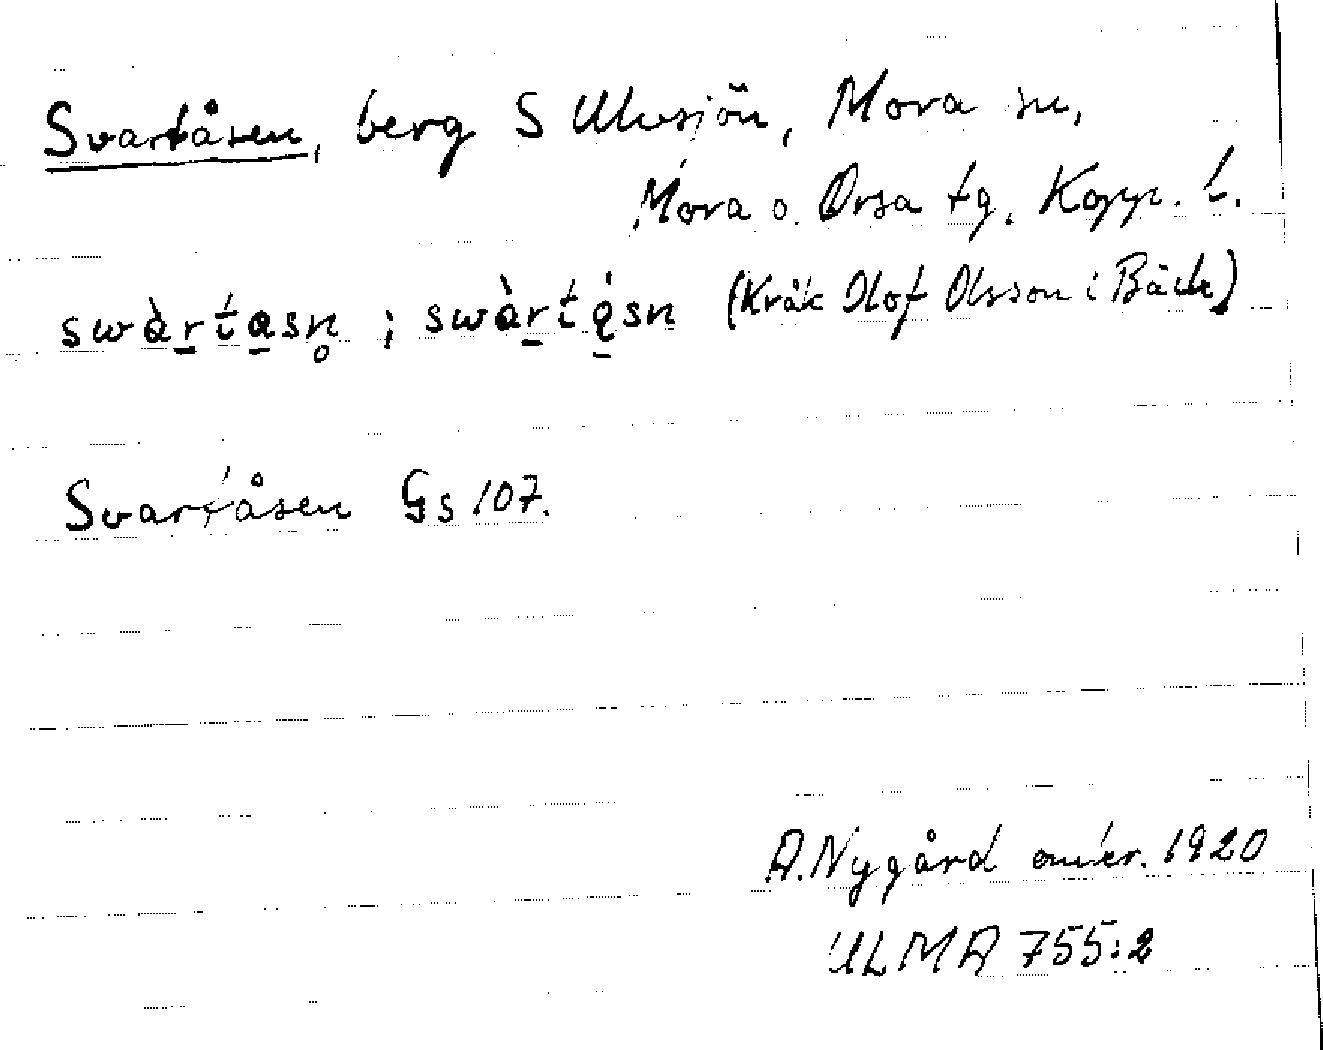 Svartåsen, berg S Ulvsjön, Mora sn,
Mora o. Orsa tg. Kopp. l.
swàrtasn̥ ; swàrtásn (Kråk Olof Olsson i Bäck)
Svartåsen Gs 107.
A. Nygård 1920
ULMA 755:2